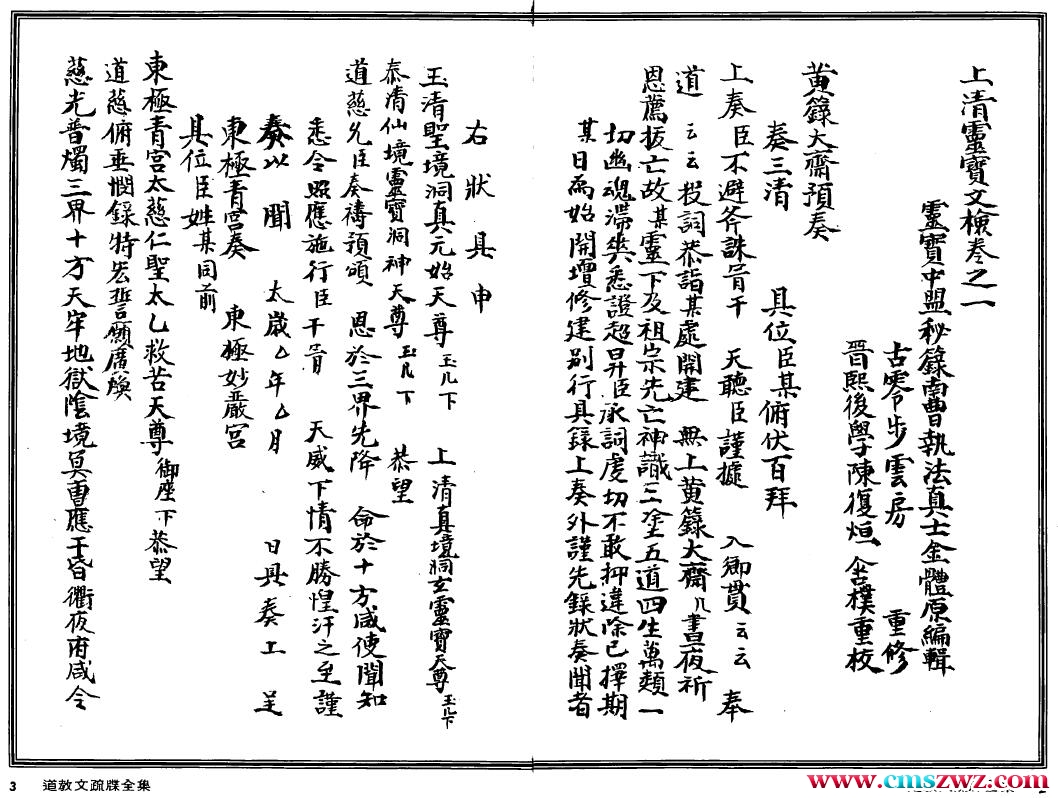 上清靈寶文檢卷之一
靈寶中盟秘籙南曹執法真士金體原編輯
古雩步雲房 重修
晋熙後學陳復烜 重校
黄籙大齋預奏
奏三清 具位臣某俯伏百拜
上奏臣不避斧誅冐干 天聽臣謹據 入鄉貫云云 奉
道 云云 投詞恭詣某處開建 無上黄籙大齋几晝夜祈
恩薦拔亡故某靈下及祖宗先亡神識三塗五道四生萬類一
切幽魂滯爽悉證超昇臣承詞虔切不敢抑違除已擇期
某日為始開壇修建别行具錄上奏外謹先錄狀奏聞者
右狀具申
玉清聖境洞真元始天尊玉几下 上清真境洞玄靈寶天尊玉几下
泰清仙境靈寶洞神天尊玉几下 恭望
道慈允臣奏禱預頒 恩於三界先降 命於十方咸使聞知
悉令照應施行臣干冐 天威下情不勝惶汗之至謹
奏以聞 太歲厶年厶月 日具奏上呈
東極青宫奏 東極妙嚴宫
具位臣姓某同前
東極青宫太慈仁聖太乙救苦天尊御座下恭望
道慈俯垂憫錄特宏誓願廣煥
慈光普燭三界十方天牢地獄陰境冥曹應干昏衢夜府咸令
3 道教文疏牒全集
www.cmszwz.com